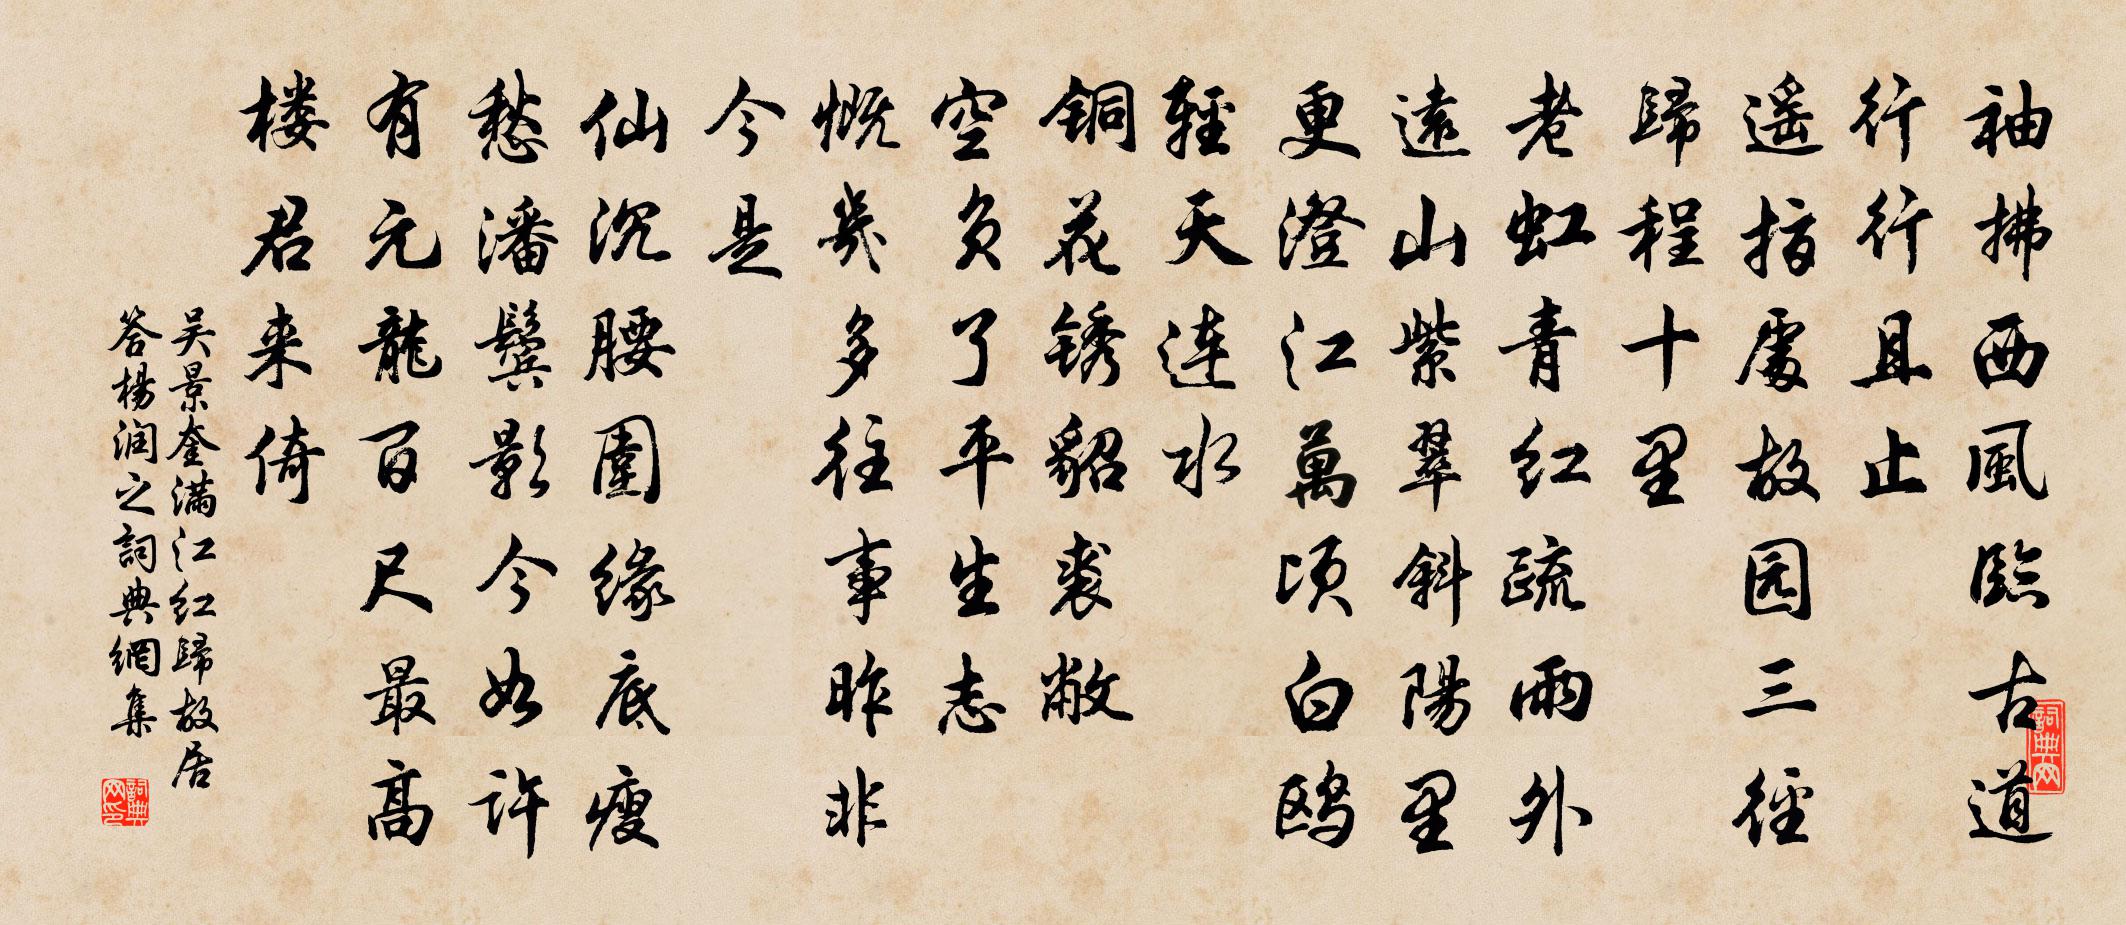 袖拂西風臨古道
行行且止
遥指處故园三徑
歸程十里
老虹青红疏雨外
遠山紫翠斜陽里
更澄江萬頃白鸥
輕天連水
铜花锈貂裘敝
空负了平生志
慨幾多往事昨非
今是
仙沉腰圍缘底瘦
愁潘鬓影今如许
有元龍百尺最高
楼君来倚
吴景奎满江红歸故居
答楊润之詞典網集
詞典网
詞典网印